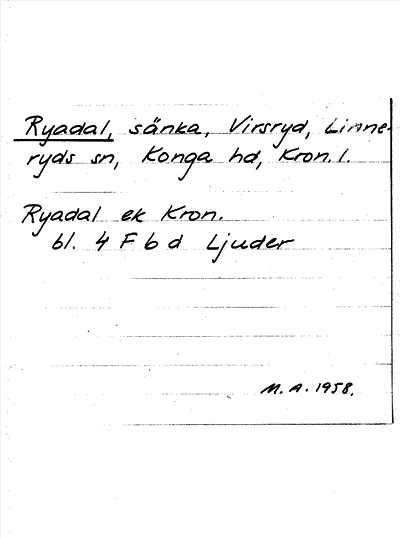 Ryadal, sänka, Virsryd, Linne-
ryds sn, Konga hd, Kron. l.
Ryadal ek Kron.
bl. 4 F b d Ljuder
M. A. 1958.